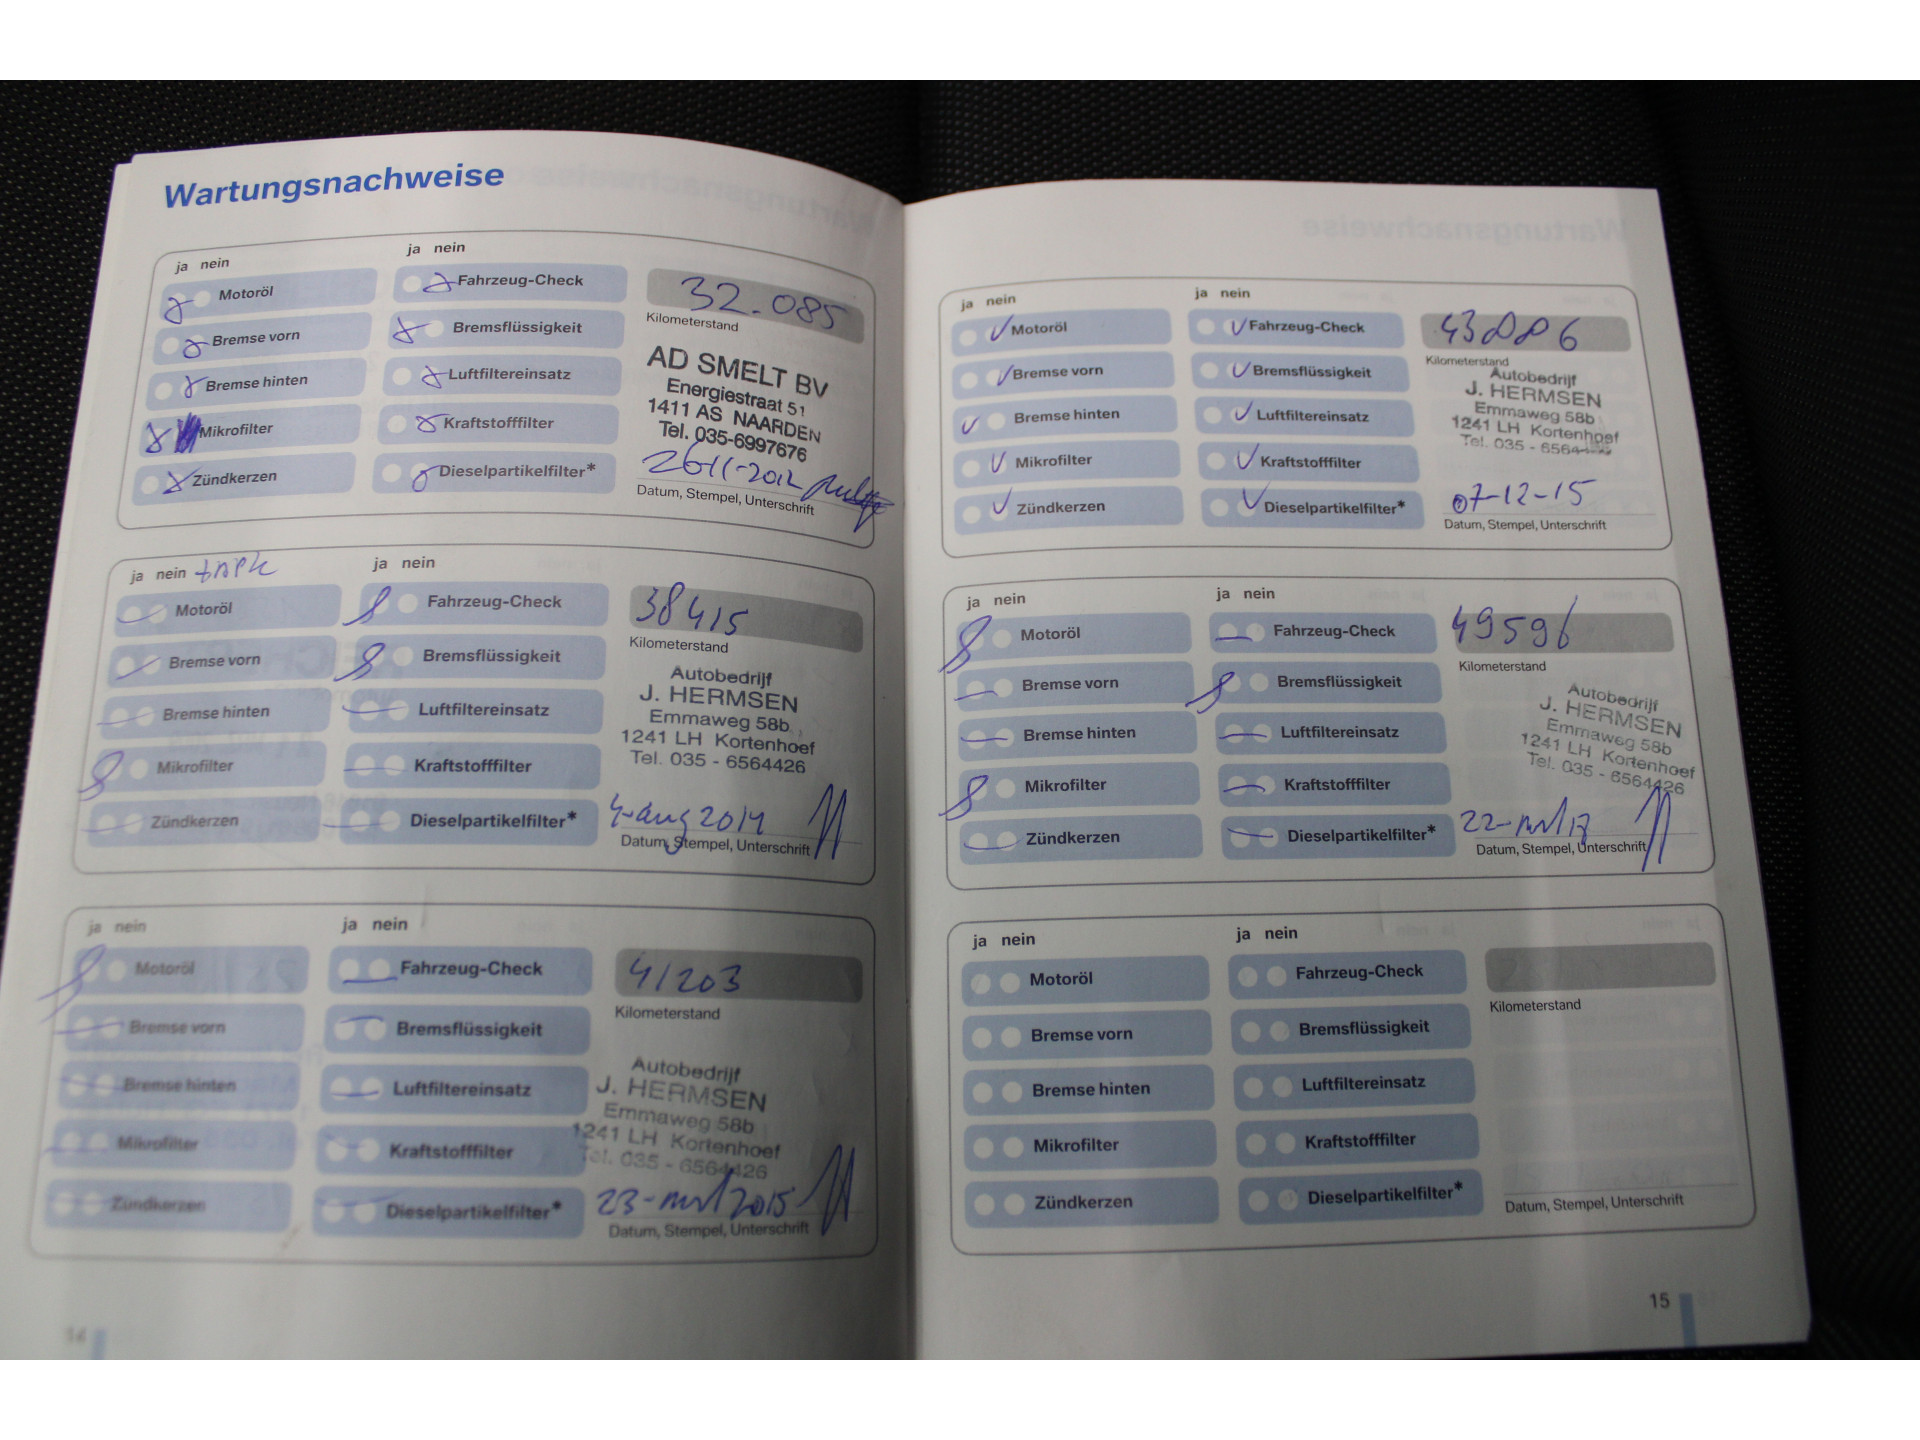 Wartungsnachweise
ja nein
ja nein
Motoröl
Fahrzeug-Check
32.085
Bremse vorn
Bremsflüssigkeit
Kilometerstand
Bremse hinten
Luftfiltereinsatz
AD SMELT BV
Energiestraat 51
1411 AS NAARDEN
Tel. 035-6997676
Mikrofilter
Kraftstofffilter
Zündkerzen
Dieselpartikelfilter*
26-11-2012
Datum, Stempel, Unterschrift
ja nein
ja nein
Motoröl
Fahrzeug-Check
38415
Bremse vorn
Bremsflüssigkeit
Kilometerstand
Bremse hinten
Luftfiltereinsatz
Autobedrijf
J. HERMSEN
Emmaweg 58b
1241 LH Kortenhoef
Tel. 035 - 6564426
Mikrofilter
Kraftstofffilter
Zündkerzen
Dieselpartikelfilter*
4-aug 2014
Datum, Stempel, Unterschrift
ja nein
ja nein
Motoröl
Fahrzeug-Check
41203
Bremse vorn
Bremsflüssigkeit
Kilometerstand
Bremse hinten
Luftfiltereinsatz
Autobedrijf
J. HERMSEN
Emmaweg 58b
1241 LH Kortenhoef
Tel. 035 - 6564426
Mikrofilter
Kraftstofffilter
Zündkerzen
Dieselpartikelfilter*
23- 2015
Datum, Stempel, Unterschrift
14
ja nein
ja nein
Motoröl
Fahrzeug-Check
Bremse vorn
Bremsflüssigkeit
Kilometerstand
Bremse hinten
Luftfiltereinsatz
Autobedrijf
J. HERMSEN
Emmaweg 58b
1241 LH Kortenhoef
Tel. 035 - 6564
Mikrofilter
Kraftstofffilter
Zündkerzen
Dieselpartikelfilter*
07-12-15
Datum, Stempel, Unterschrift
ja nein
ja nein
Motoröl
Fahrzeug-Check
49596
Bremse vorn
Bremsflüssigkeit
Kilometerstand
Bremse hinten
Luftfiltereinsatz
Autobedrijf
J. HERMSEN
Emmaweg 58b
1241 LH Kortenhoef
Tel. 035 - 6564426
Mikrofilter
Kraftstofffilter
Zündkerzen
Dieselpartikelfilter*
22- 17
Datum, Stempel, Unterschrift
ja nein
ja nein
Motoröl
Fahrzeug-Check
Bremse vorn
Bremsflüssigkeit
Kilometerstand
Bremse hinten
Luftfiltereinsatz
Mikrofilter
Kraftstofffilter
Zündkerzen
Dieselpartikelfilter*
Datum, Stempel, Unterschrift
15